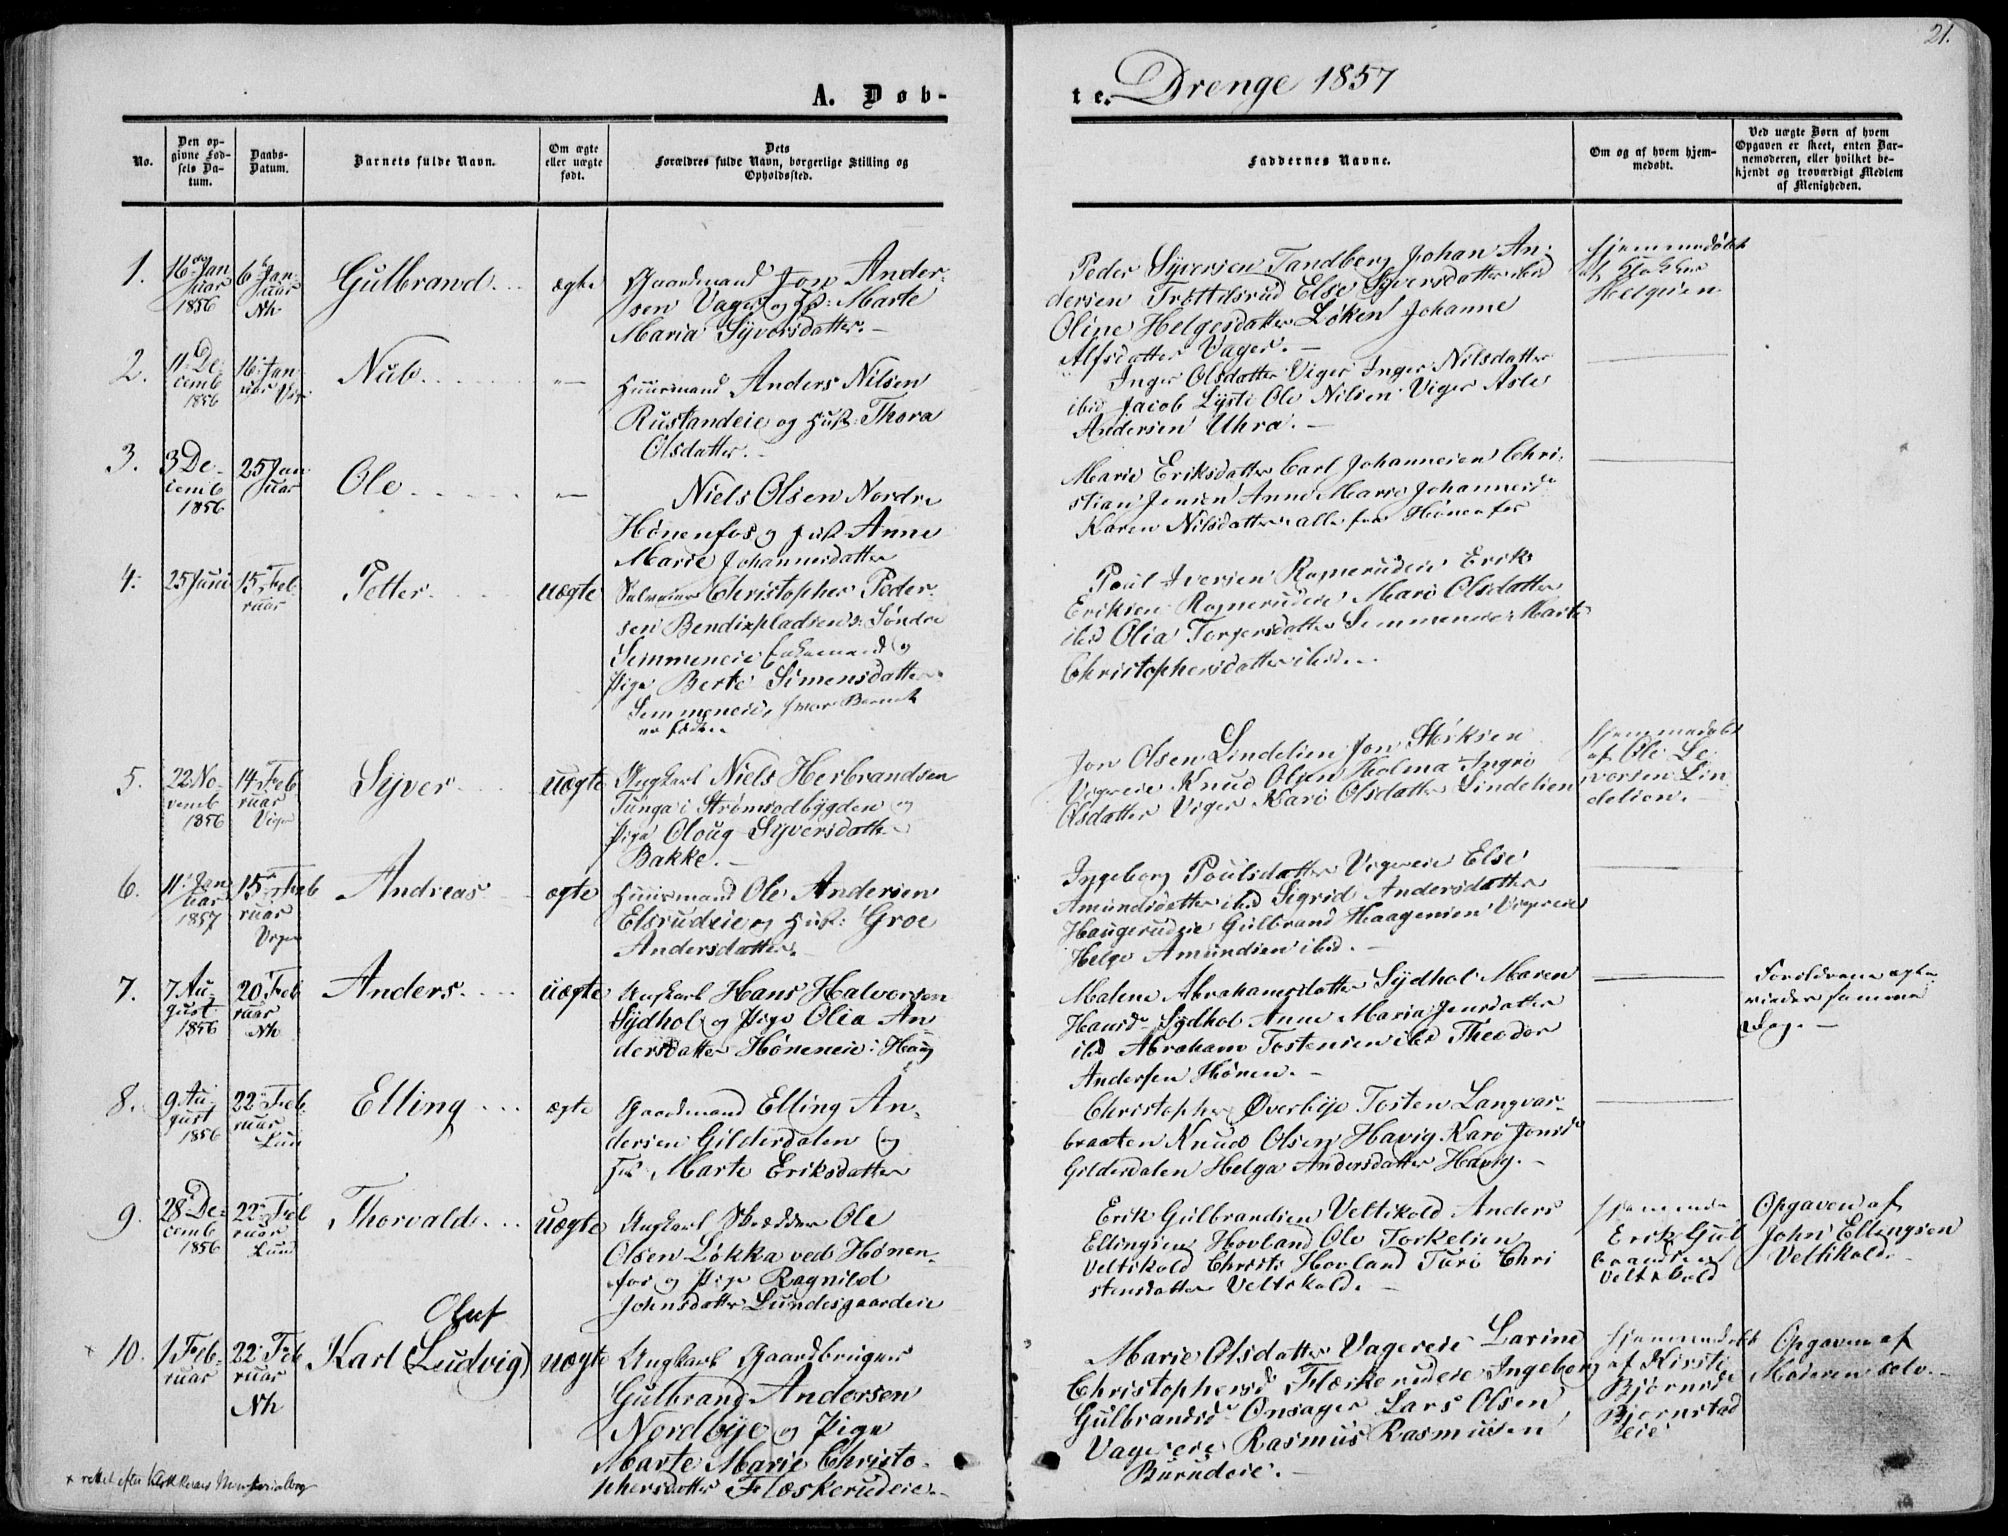 21.
A. Døb-
te. Drenge 1857
No.
Den op-
givne Fød-
sels Da-
tum.
Daabs-
Datum.
Barnets fulde Navn.
Om ægte
eller uægte
født.
Dets
Forældres fulde Navn, borgerlige Stilling og
Opholdssted.
Faddernes Navne.
Om og af hvem hjem-
medøbt.
Ved uægte Børn af hvem
Opgaven er skeet, enten Bar-
nemoderen, eller hvilket be-
kjendt og troværdigt Medlem
af Menigheden.
1.
16 Jan
uar
1856
6 Jan
uar
Nh
Gulbrand
ægte
Gaardmand Jon Ander-
sen Vager og Hst: Marte
Maria Syversdatter. -
Peder Syversen Tandberg Johan An-
dersen Trøttelsrud Else Syversdatter ibid
Oline Helgesdatter Løken Johanne
Alfsdatter Vager. -
Hjemmedøbt
af
Helgesen
2.
11 De-
cemb
1856
16 Jan
uar
Nub
Huusmand Anders Nilsen
Rustandeie og Hust: Thora
Olsdatter. -
Inger Olsdatter Viger Inger Nilsdatter
ibid Jacob Lysti Ole Nilsen Viger Asle
Andersen Uhra. -
3.
3 De-
cemb
1856
25 Jan
uar
Ole
Niels Olsen Nordre
Hønenfos og Hust Anne
Marie Johannesdatter
Marie Eriksdatter Carl Johannesen Chri-
stian Jensen Anne Marie Johannesd
Karen Nilsdatter alle fra Hønenfos
4.
25 Juni
15 Feb
ruar
Petter
uægte
Christopher Peder-
sen Bendixpladsen s: Søndre
Semmeneie og
Pige Berte Simensdatter
Semmeneie, hvor Barnet
er født
Poul Iversen Ragnerudeie Erik
Eriksen Ragnerudeie Mari Olsdatter
ibid Olia Torgersdatter Semmeneie Marte
Christophersdatter ibid.
5.
22 No-
vemb
1856
14 Feb
ruar
Viger
Syver
uægte
Ungkarl Niels Herbrandsen
Tunga i Strømsodbygden og
Pige Oloug Syversdatter
Bakke. -
Jon Olsen Lindelien Jon Størksen
Vegereie Knud Olsen Holma Ingri
Olsdatter Viger Kari Olsdatter Lindelien
Hjemmedøbt
af Ole Se-
versen Lin
delien. -
6.
11 Jan
uar
1857
15 Feb
ruar
Viger
Andreas
ægte
Huusmand Ole Andersen
Elsrudeie og Hust: Groe
Andersdatter.
Ingeborg Poulsdatter Vegereie Else
Amundsdatter ibid Sigrid Andersdatter
Haugerudeie Gulbrand Haagensen Vegereie
Helge Amundsen ibid. -
7.
7 Au-
gust
1856
20 Feb
ruar
Nh
Anders
uægte
Ungkarl Hans Halvorsen
Sydhol og Pige Olia An
dersdatter Høneneie i Haug
Malene Abrahamsdatter Sydhol Maren
Hansd- Sydhol Anne Maria Jensdatter
ibid Abraham Tostensen ibid Theodor
Andersen Hønen. -
Forældrene ægte-
viedes samme
Dag. -
8.
9 Au-
gust
1856
22 Feb
ruar
Lun
Elling
ægte
Gaardmand Elling An-
dersen Gilderdalen og
Hst. Marte Eriksdatter
Christopher Øverbye Tosten Langvar-
braaten Knud Olsen Havig Kari Jonsd
Gilderdalen Helga Andersdatter Havig. -
9.
28 De-
cemb
1856
22 Feb
ruar
Lund
Thorvald
uægte
Ungkarl Skrædder Ole
Olsen Løkka ved Hønen-
fos og Pige Ragnild
Johnsdatter Lundesgaardeie
Erik Gulbrandsen Veltikold Anders
Ellingsen Hovland Ole Torkelsen
Veltikold Christi Hovland Turi Chri
stensdatter Veltikold. -
Hjemmedø
Erik Gul
brandsen
Veltikold
Opgaven af
John Ellingsen
Veltikold. -
x 10.
1 Feb-
ruar
22 Feb
ruar
Nh
Oluf
Karl (Ludvig)
uægte
Ungkarl Gaardbruger
Gulbrand Andersen
Nordbye og Pige
Marte Marie Christo-
phersdatter Flæskerudeie. -
Marie Olsdatter Vagereie Larine
Christophersd Flæskerudeie Ingeborg
Gulbrandsd Onsager Lars Olsen
Vagereie Rasmus Rasmussen
Burudeie. -
Hjemmedøbt
af Kirsti
Bjørnsd
Bjørnstad
eie
Opgaven af
Moderen selv. -
x rettet efter Klokkerens Ministerialbog